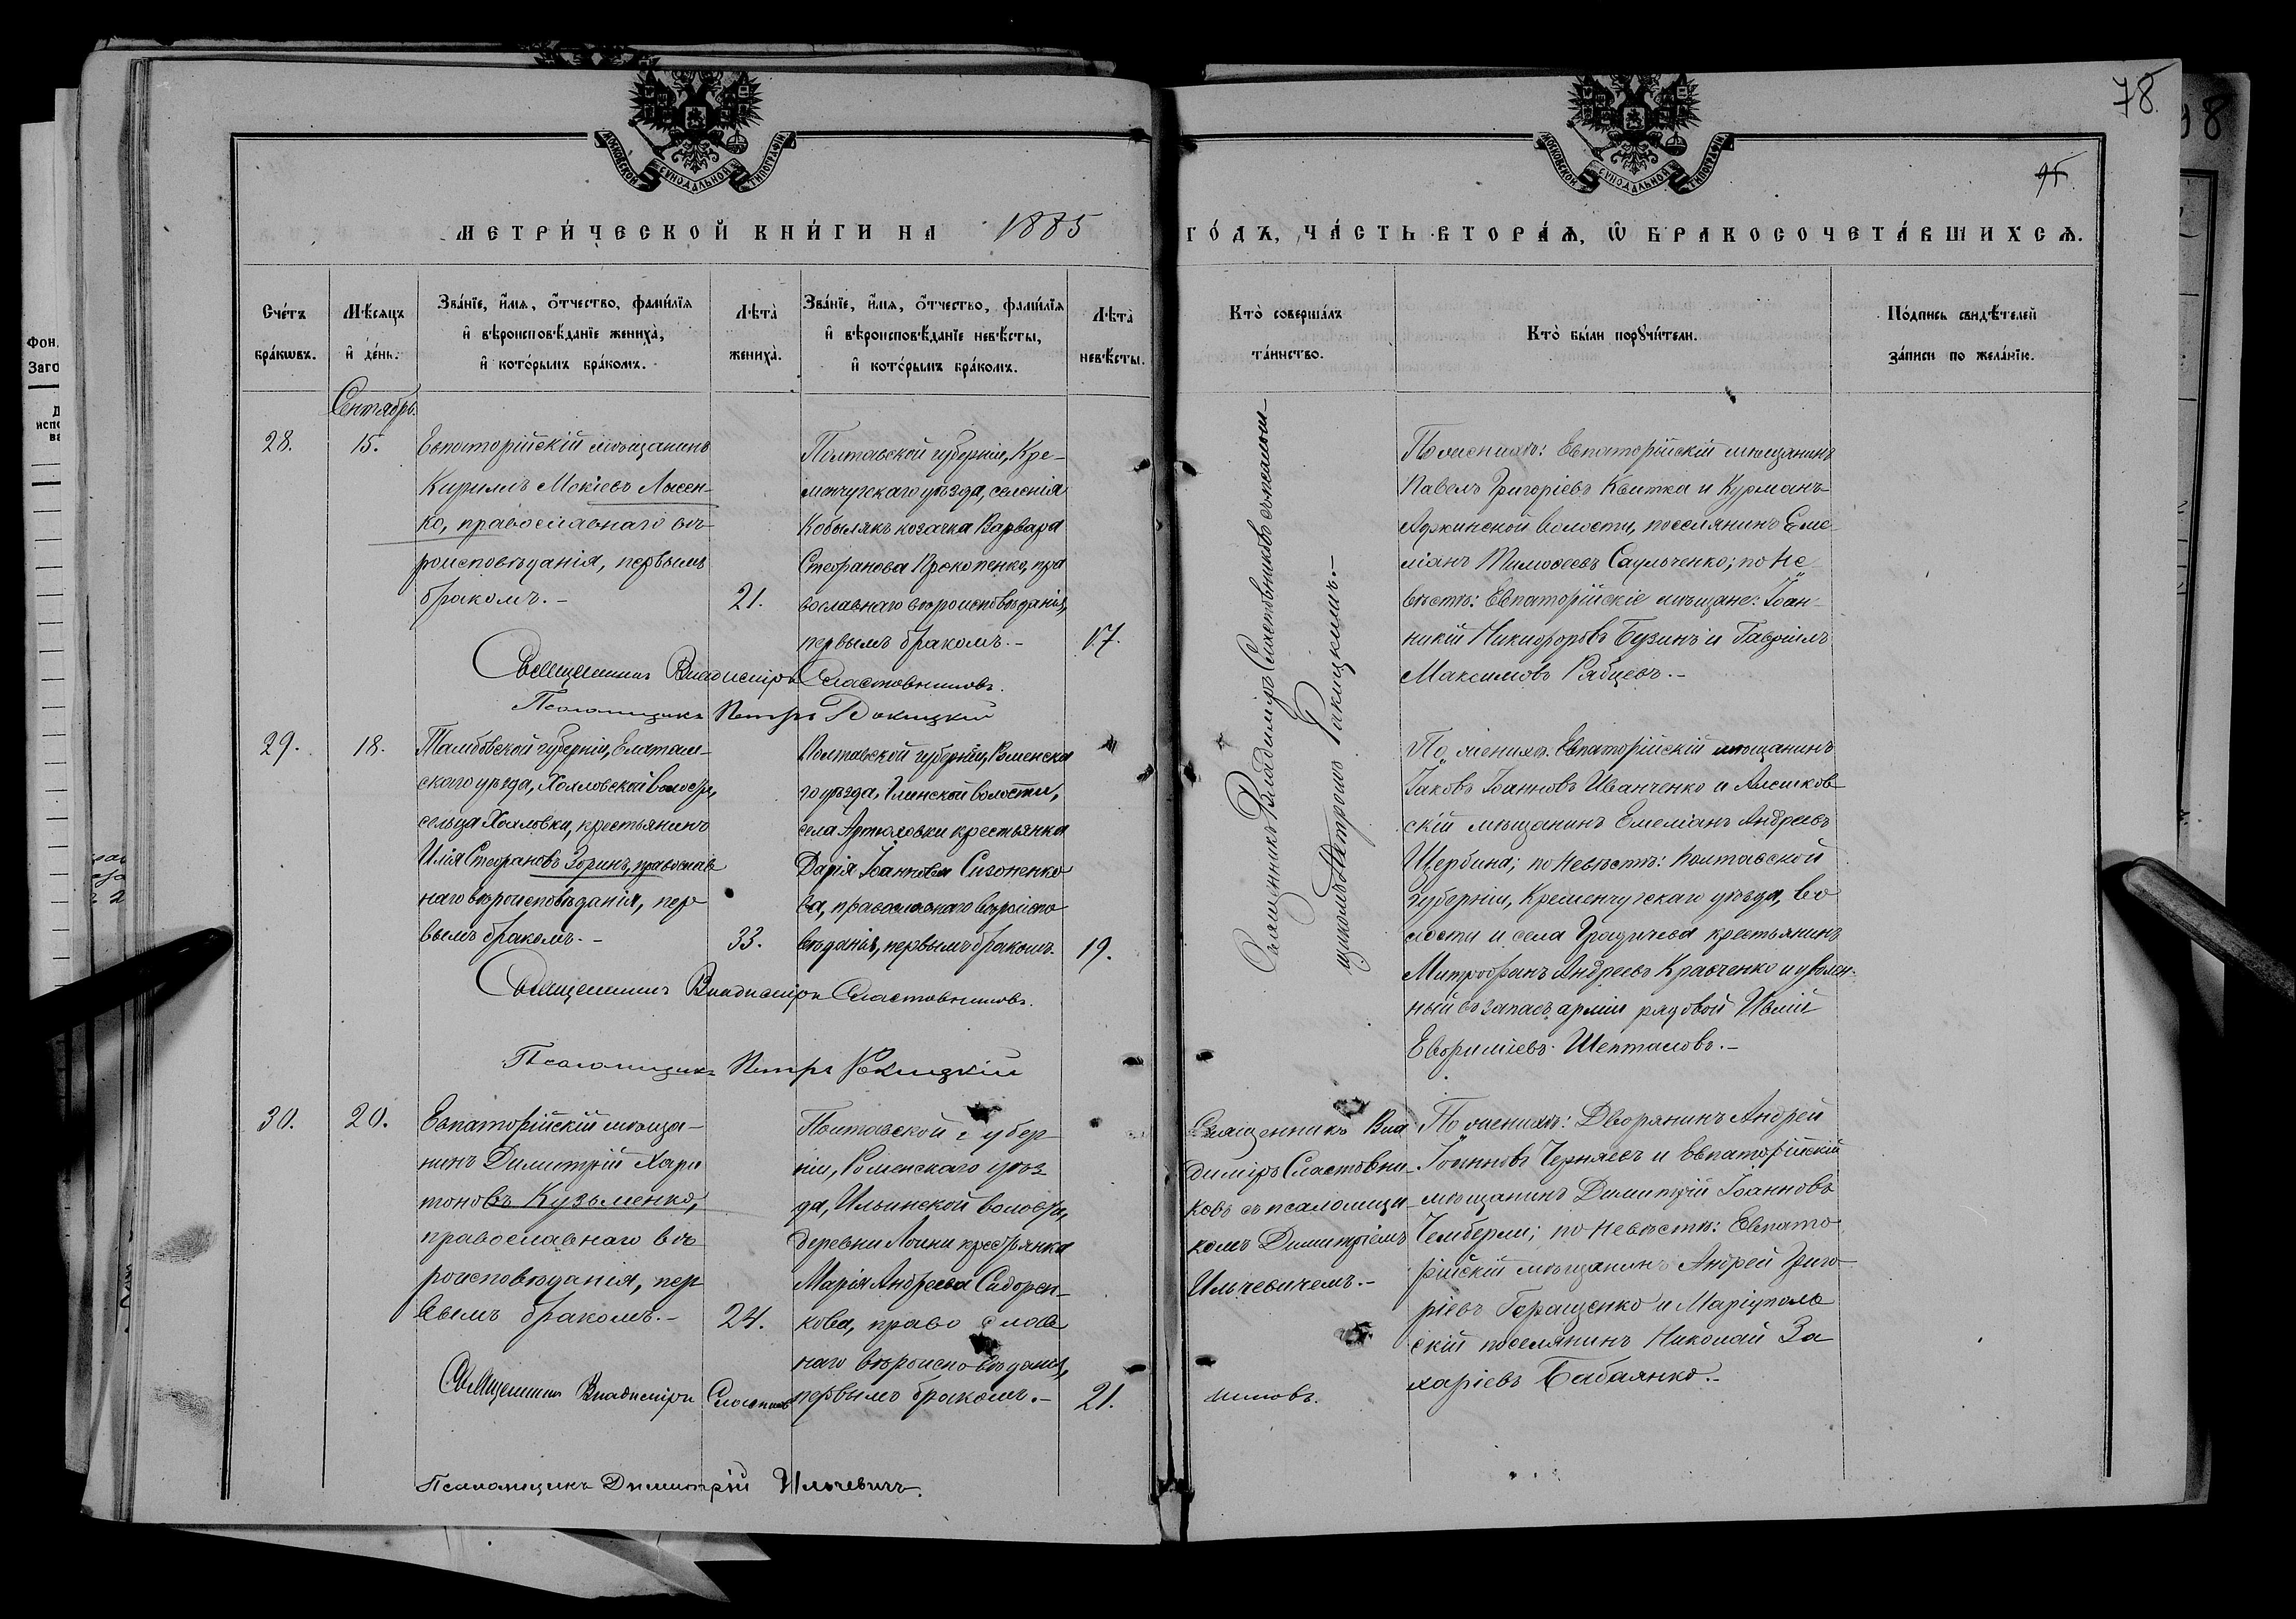 78
95
МОСКОВСКОЙ СѴНОДАЛЬНОЙ ТИПОГРАФІИ
МОСКОВСКОЙ СѴНОДАЛЬНОЙ ТИПОГРАФІИ
МЕТРИ́ЧЕСКОЙ КНИ́ГИ НА 1885
ГО́ДЪ, ЧА́СТЬ ВТОРА́Я, Ѡ БРАКОСОЧЕТА́ВШИХСѦ.
Сче́тъ
бра́кѡвъ.
Мѣ́сяцъ
и҆ де́нь.
Зва́нїе, и҆́мя, ѻ҆́тчество, фами́лїя
и҆ вѣроисповѣ́данїе жениха̀,
и҆ кото́рымъ бра́комъ.
Лѣта̀
жениха̀.
Зва́нїе, и҆́мя, ѻ҆́тчество, фами́лїя
и҆ вѣроисповѣ́данїе невѣ́сты,
и҆ кото́рымъ бра́комъ.
Лѣта̀
невѣ́сты.
Кто̀ соверша́лъ
та́инство.
Кто̀ бы́ли порꙋчи́тели.
По́дпись свидѣ́телей
за́писи по жела́нїю.
Сентябрь.
28.
15.
Евпаторійскій мѣщанинъ
Кириллъ Мокіевъ Лысен-
ко, православнаго вѣ-
роисповѣданія, первымъ
бракомъ.-
21.
Полтавской губерніи, Кре-
менчугскаго уѣзда, селенія
Кобылякъ козачка Варвара
Стефанова Прокопенко, пра
вославнаго вѣроисповѣданія,
первымъ бракомъ.-
17.
Священникъ Владиміръ Сластовниковъ съ псаломщ-
щикомъ Петромъ Ракицкимъ.-
По женихѣ: Евпаторійскій мѣщанинъ
Павелъ Григоріевъ Квитка и Курманъ-
Аджинской волости, поселянинъ Еме-
ліанъ Тимоѳеевъ Саульченко; по Не
вѣстѣ: Евпаторійскіе мѣщане: Іоан-
никій Никифоровъ Бузинъ и Гавріилъ
Максимовъ Рябцевъ.-
Священникъ Владиміръ Сластовниковъ.
Псаломщикъ Петръ Ракицкій
29.
18.
Тамбовской губерніи, Елатом-
скаго уѣзда, волости,
сельца крестьянинъ
Илія Стефановъ Зоринъ, православ
наго вѣроисповѣданія, пер
вымъ бракомъ.-
33.
Полтавской губерніи, Роменска
го уѣзда, Глинской волости,
села Артюховки крестьянка
Дарія Іоаннова Сизоненко
ва, православнаго вѣроиспо
вѣданія, первымъ бракомъ.
19.
По женихѣ: Евпаторійскій мѣщанинъ
Іаковъ Іоанновъ Иванченко и Алешков-
скій мѣщанинъ Емеліанъ Андреевъ
Щербина; по Невѣстѣ: Полтавской
губерніи, Кременчугскаго уѣзда, во
лости и села Градичева крестьянинъ
Митрофанъ Андреевъ Кравченко и уволен-
ный въ запасъ арміи рядовой
Евфиміевъ Шепталовъ.-
Священникъ Владиміръ Сластовниковъ.
Псаломщикъ Петръ Ракицкій
30.
20.
Евпаторійскій мѣща-
нинъ Димитрій Хари
тоновъ Кузьменко,
православнаго вѣ
роисповѣданія, пер
вымъ бракомъ.-
24.
Полтавской губер
ніи, Роменскаго уѣз
да, Ильинской волости,
деревни крестьянка
Марія Андреева Сидорен-
кова, право слав
наго вѣроисповѣданія,
первымъ бракомъ.-
21.
Священникъ Вла
диміръ Сластовни-
ковъ съ псаломщи-
комъ Димитріемъ
Ильчевичемъ.-
По женихѣ: Дворянинъ Андрей
Іоанновъ Черняевъ и Евпаторійскій
мѣщанинъ Димитрій Іоанновъ
Чемберли; по Невѣстѣ: Евпато
рійскій мѣщанинъ Андрей Григо
ріевъ Геращенко и Маріуполь
скій поселянинъ Николай За
харіевъ Бабаянко.-
Священникъ Владиміръ Сластов
никовъ.
Псаломщикъ Димитрій Ильчевичъ.